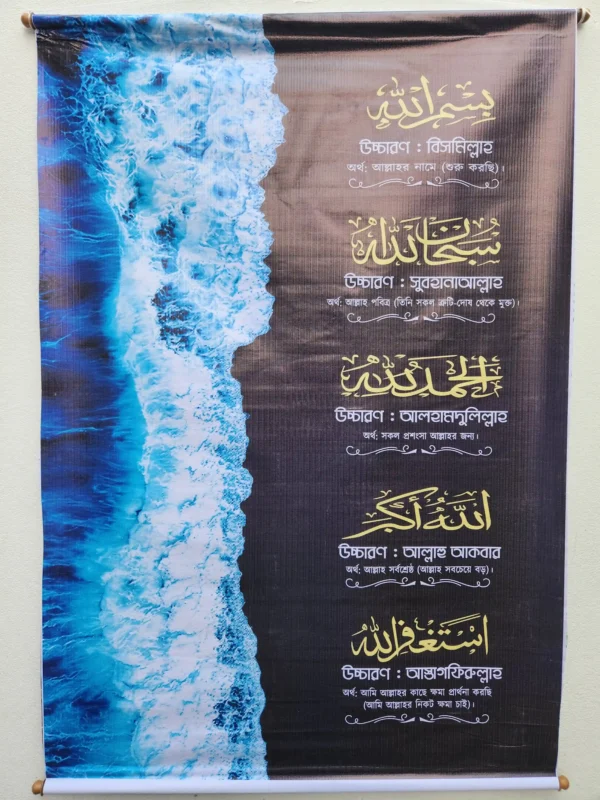 بِسْمِ اللّٰهِ
উচ্চারণ : বিসমিল্লাহ
অর্থ: আল্লাহর নামে (শুরু করছি)।
سُبْحَانَ اللّٰهِ
উচ্চারণ : সুবহানাআল্লাহ
অর্থ: আল্লাহ পবিত্র (তিনি সকল ত্রুটি-দোষ থেকে মুক্ত)।
الْحَمْدُ لِلّٰهِ
উচ্চারণ : আলহামদুলিল্লাহ
অর্থ: সকল প্রশংসা আল্লাহর জন্য।
اللّٰهُ أَكْبَر
উচ্চারণ : আল্লাহু আকবার
অর্থ: আল্লাহ সর্বশ্রেষ্ঠ (আল্লাহ সবচেয়ে বড়)।
اَسْتَغْفِرُ اللّٰه
উচ্চারণ : আস্তাগফিরুল্লাহ
অর্থ: আমি আল্লাহর কাছে ক্ষমা প্রার্থনা করছি
(আমি আল্লাহর নিকট ক্ষমা চাই)।